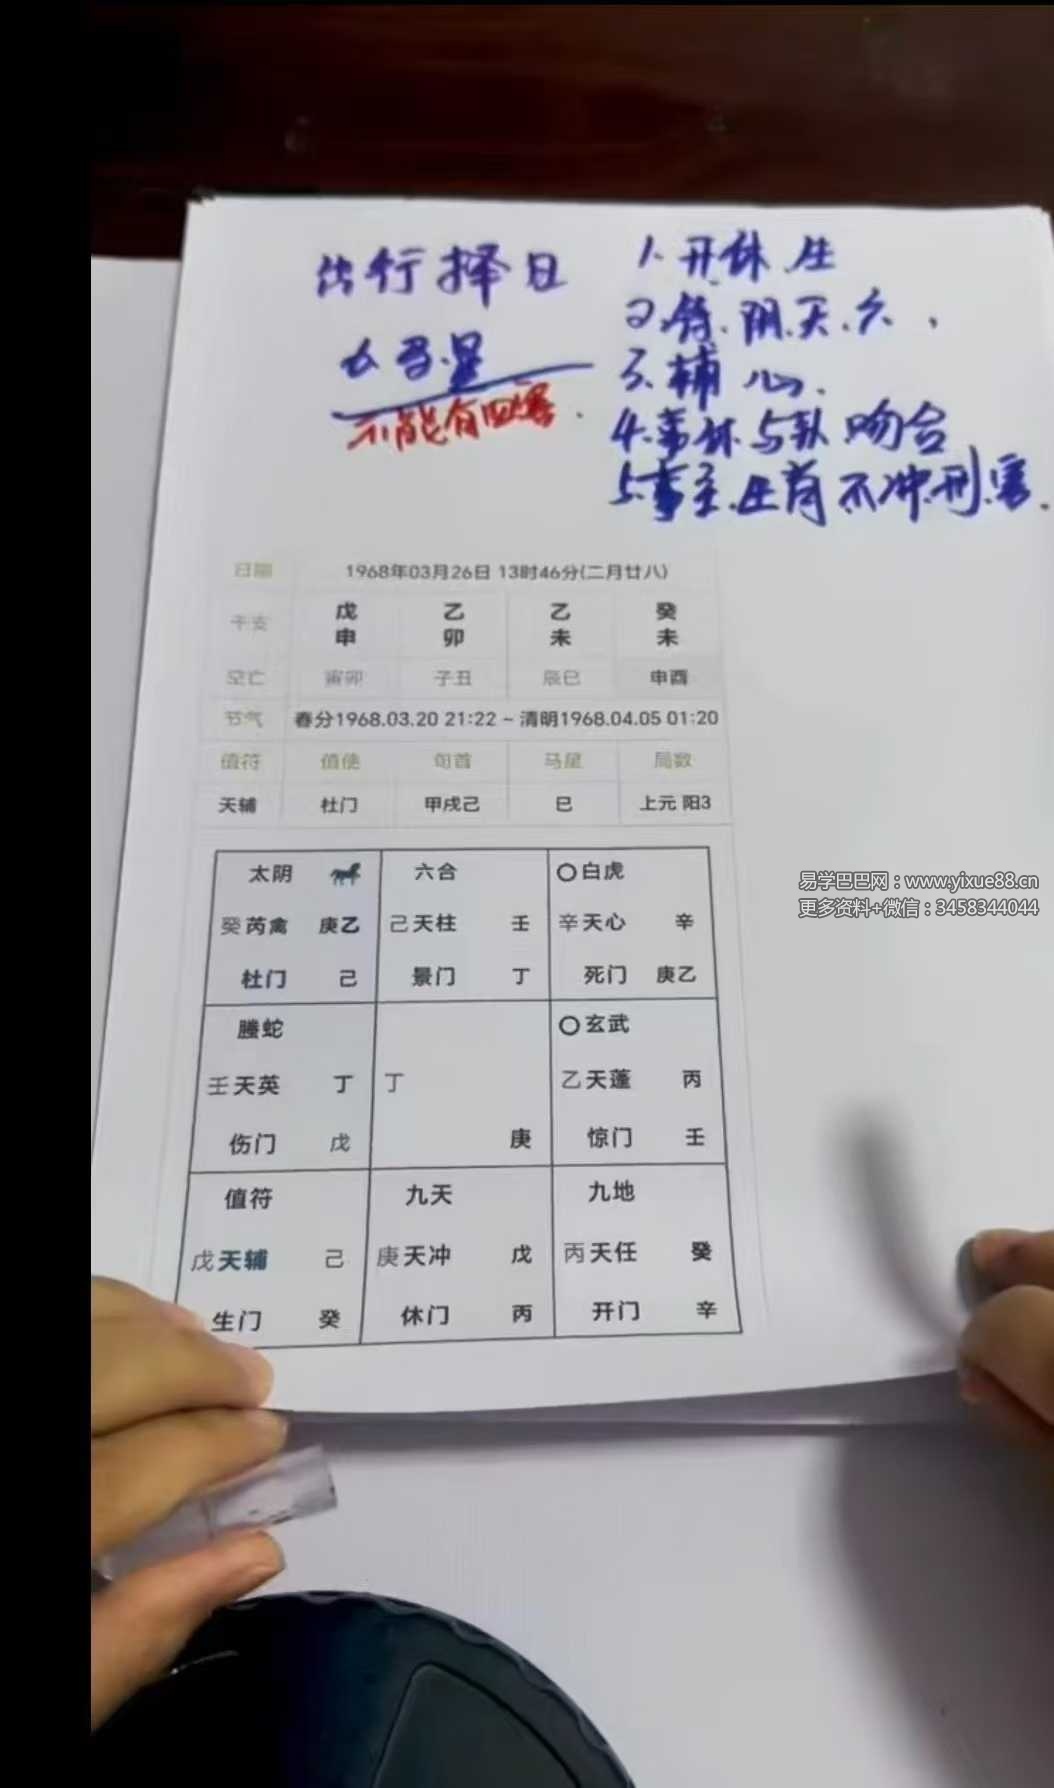 出行择日
1.开休.生
2.符.阴.天.六.
马星
3.辅 心.
不能有四害.
4.事体与卦吻合
5.事主.生肖不冲.刑.害.
日期 1968年03月26日 13时46分(二月廿八)
干支 戊申 乙卯 乙未 癸未
空亡 寅卯 子丑 辰巳 申酉
节气 春分1968.03.20 21:22 ~ 清明1968.04.05 01:20
值符 值使 旬首 马星 局数
天辅 杜门 甲戌己 巳 上元 阳3
太阴 六合 〇白虎
癸 芮禽 庚乙 己 天柱 壬 辛 天心 辛
杜门 己 景门 丁 死门 庚乙
螣蛇 〇玄武
壬 天英 丁 丁 乙 天蓬 丙
伤门 戊 庚 惊门 壬
值符 九天 九地
戊 天辅 己 庚 天冲 戊 丙 天任 癸
生门 癸 休门 丙 开门 辛
易学巴巴网：www.yixue88.cn
更多资料+微信：3458344044